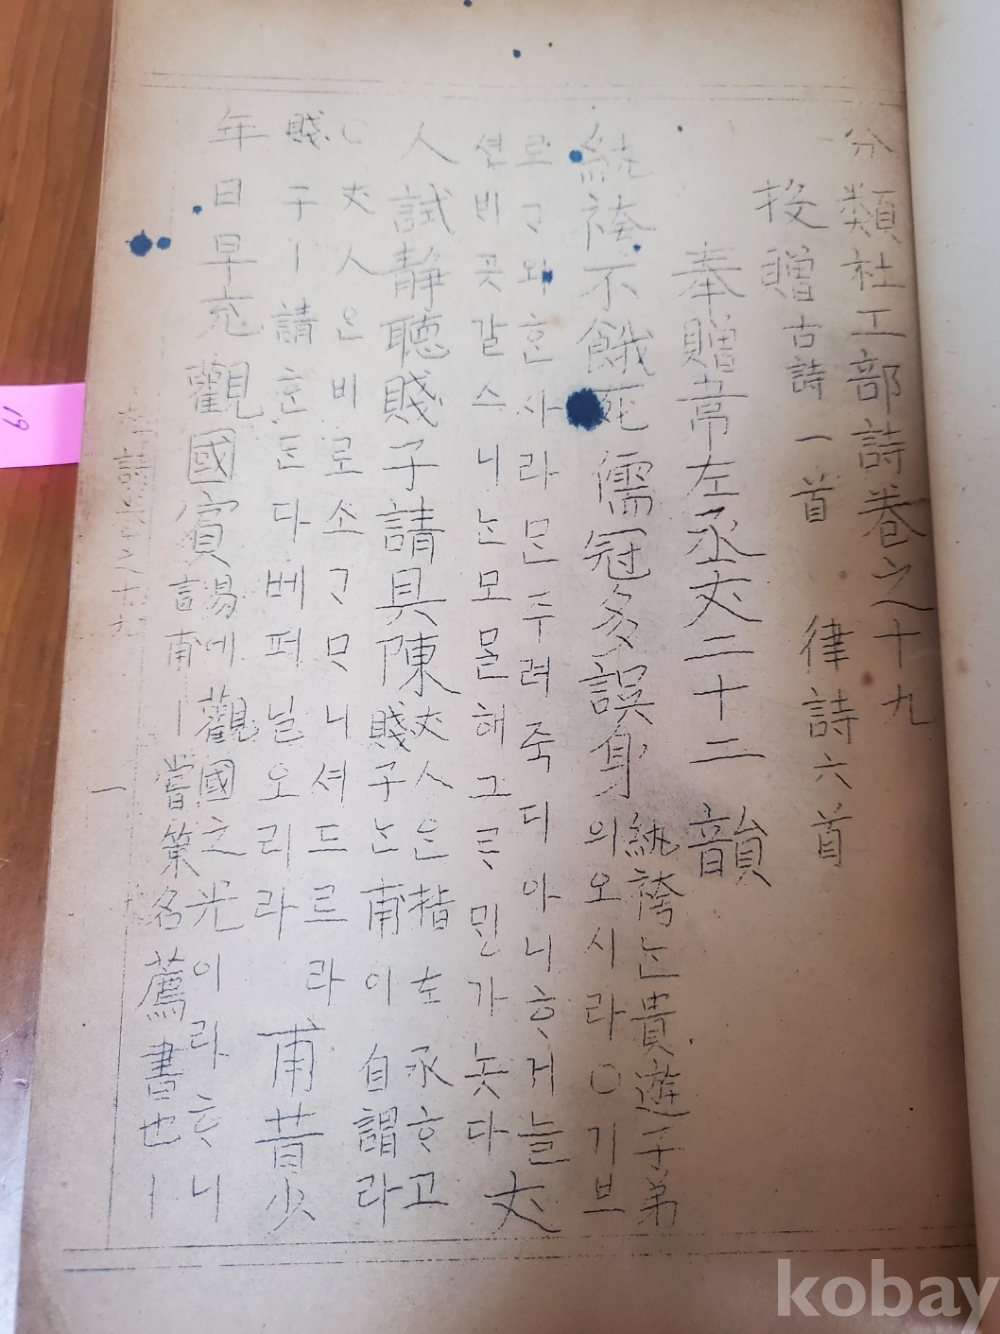 分類杜工部詩卷之十九
投贈古詩一首 律詩六首
奉贈韋左丞丈二十二韻
紈袴不餓死儒冠多誤身
紈袴ᄂᆞᆫ貴遊子弟
의오시라○기브
로ᄀᆞ와ᄒᆞᆫ사라ᄆᆞᆫ주려죽디아니ᄒᆞ거늘
션비곳갈스니ᄂᆞᆫ모몰해그르ᄆᆡᆫ가놋다
丈
人試靜聽賤子請具陳
丈人은指左丞ᄒᆞ고
賤子ᄂᆞᆫ甫이自謂라
○丈人은비로소ᄀᆞᄆᆞ니셔드르라
賤子ㅣ請ᄒᆞᆫᄃᆞᆫ다베펴닐오리라
甫昔少
年日早充觀國賓
易에觀國之光이라ᄒᆞ니
言甫ㅣ嘗策名薦書也ㅣ
一
19
kobay